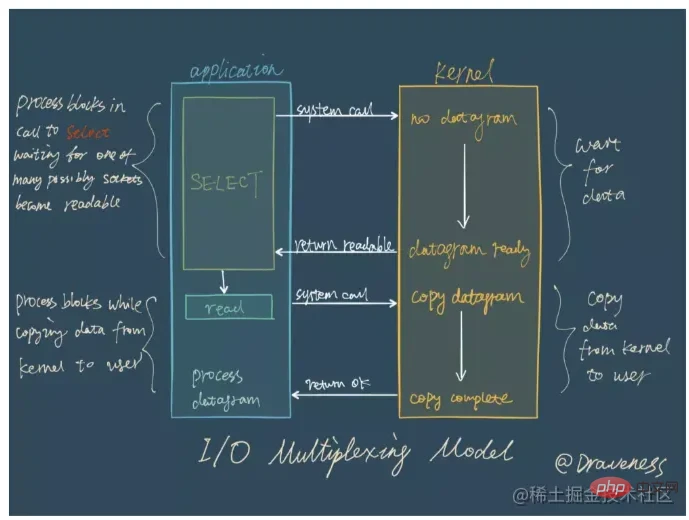 application
kernel
process blocks in
call to select
waiting for one of
many possibly sockets
become readable
SELECT
system call
no datagram
wait
for
data
return readable
datagram ready
process blocks while
copying data from
kernel to user
read
system call
copy datagram
copy
data
from kernel
to user
process
datagram
return ok
copy complete
I/O Multiplexing Model
@Draveness
php
@稀土掘金技术社区